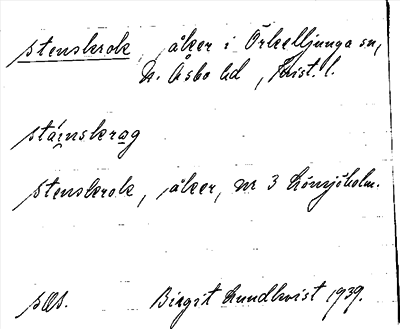 stenskrok, åker i Örkelljunga sn,
N. Åsbo hd, Krist. l.
stáinskrag
stenskrok, åker, nr 3 Lönsjöholm.
Birgit Lundkvist 1939.